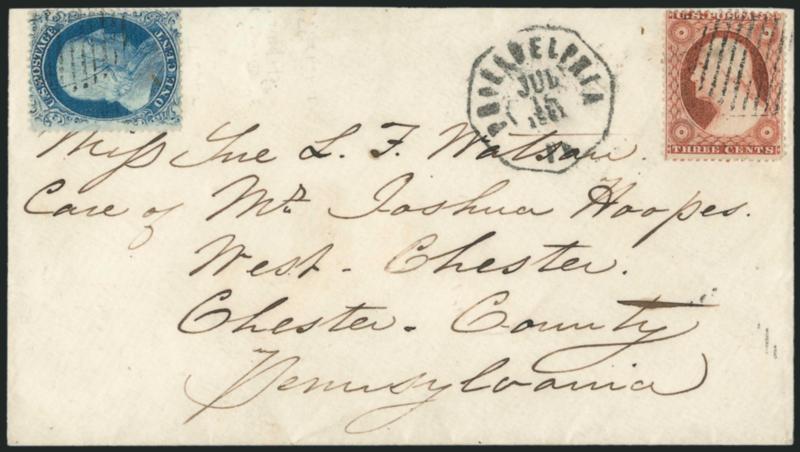 U.S. POSTAGE
ONE CENT
PHILADELPHIA
JUL
15
1861
U.S. POSTAGE
THREE CENTS
Miss Sue L. F. Watson.
Care of Mr. Joshua Hoopes.
West-Chester.
Chester-County
Pennsylvania